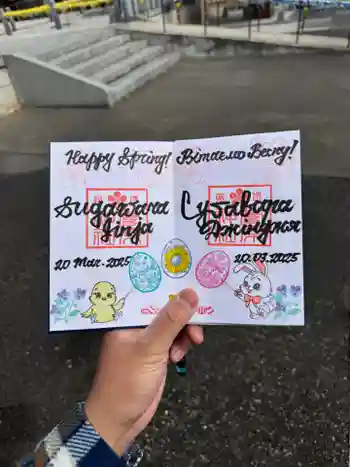 Happy Spring!
Sugawara
Jinja
20 Mar. 2025
Вітаємо Весну!
Сугавара
Джінджя
20.03.2025